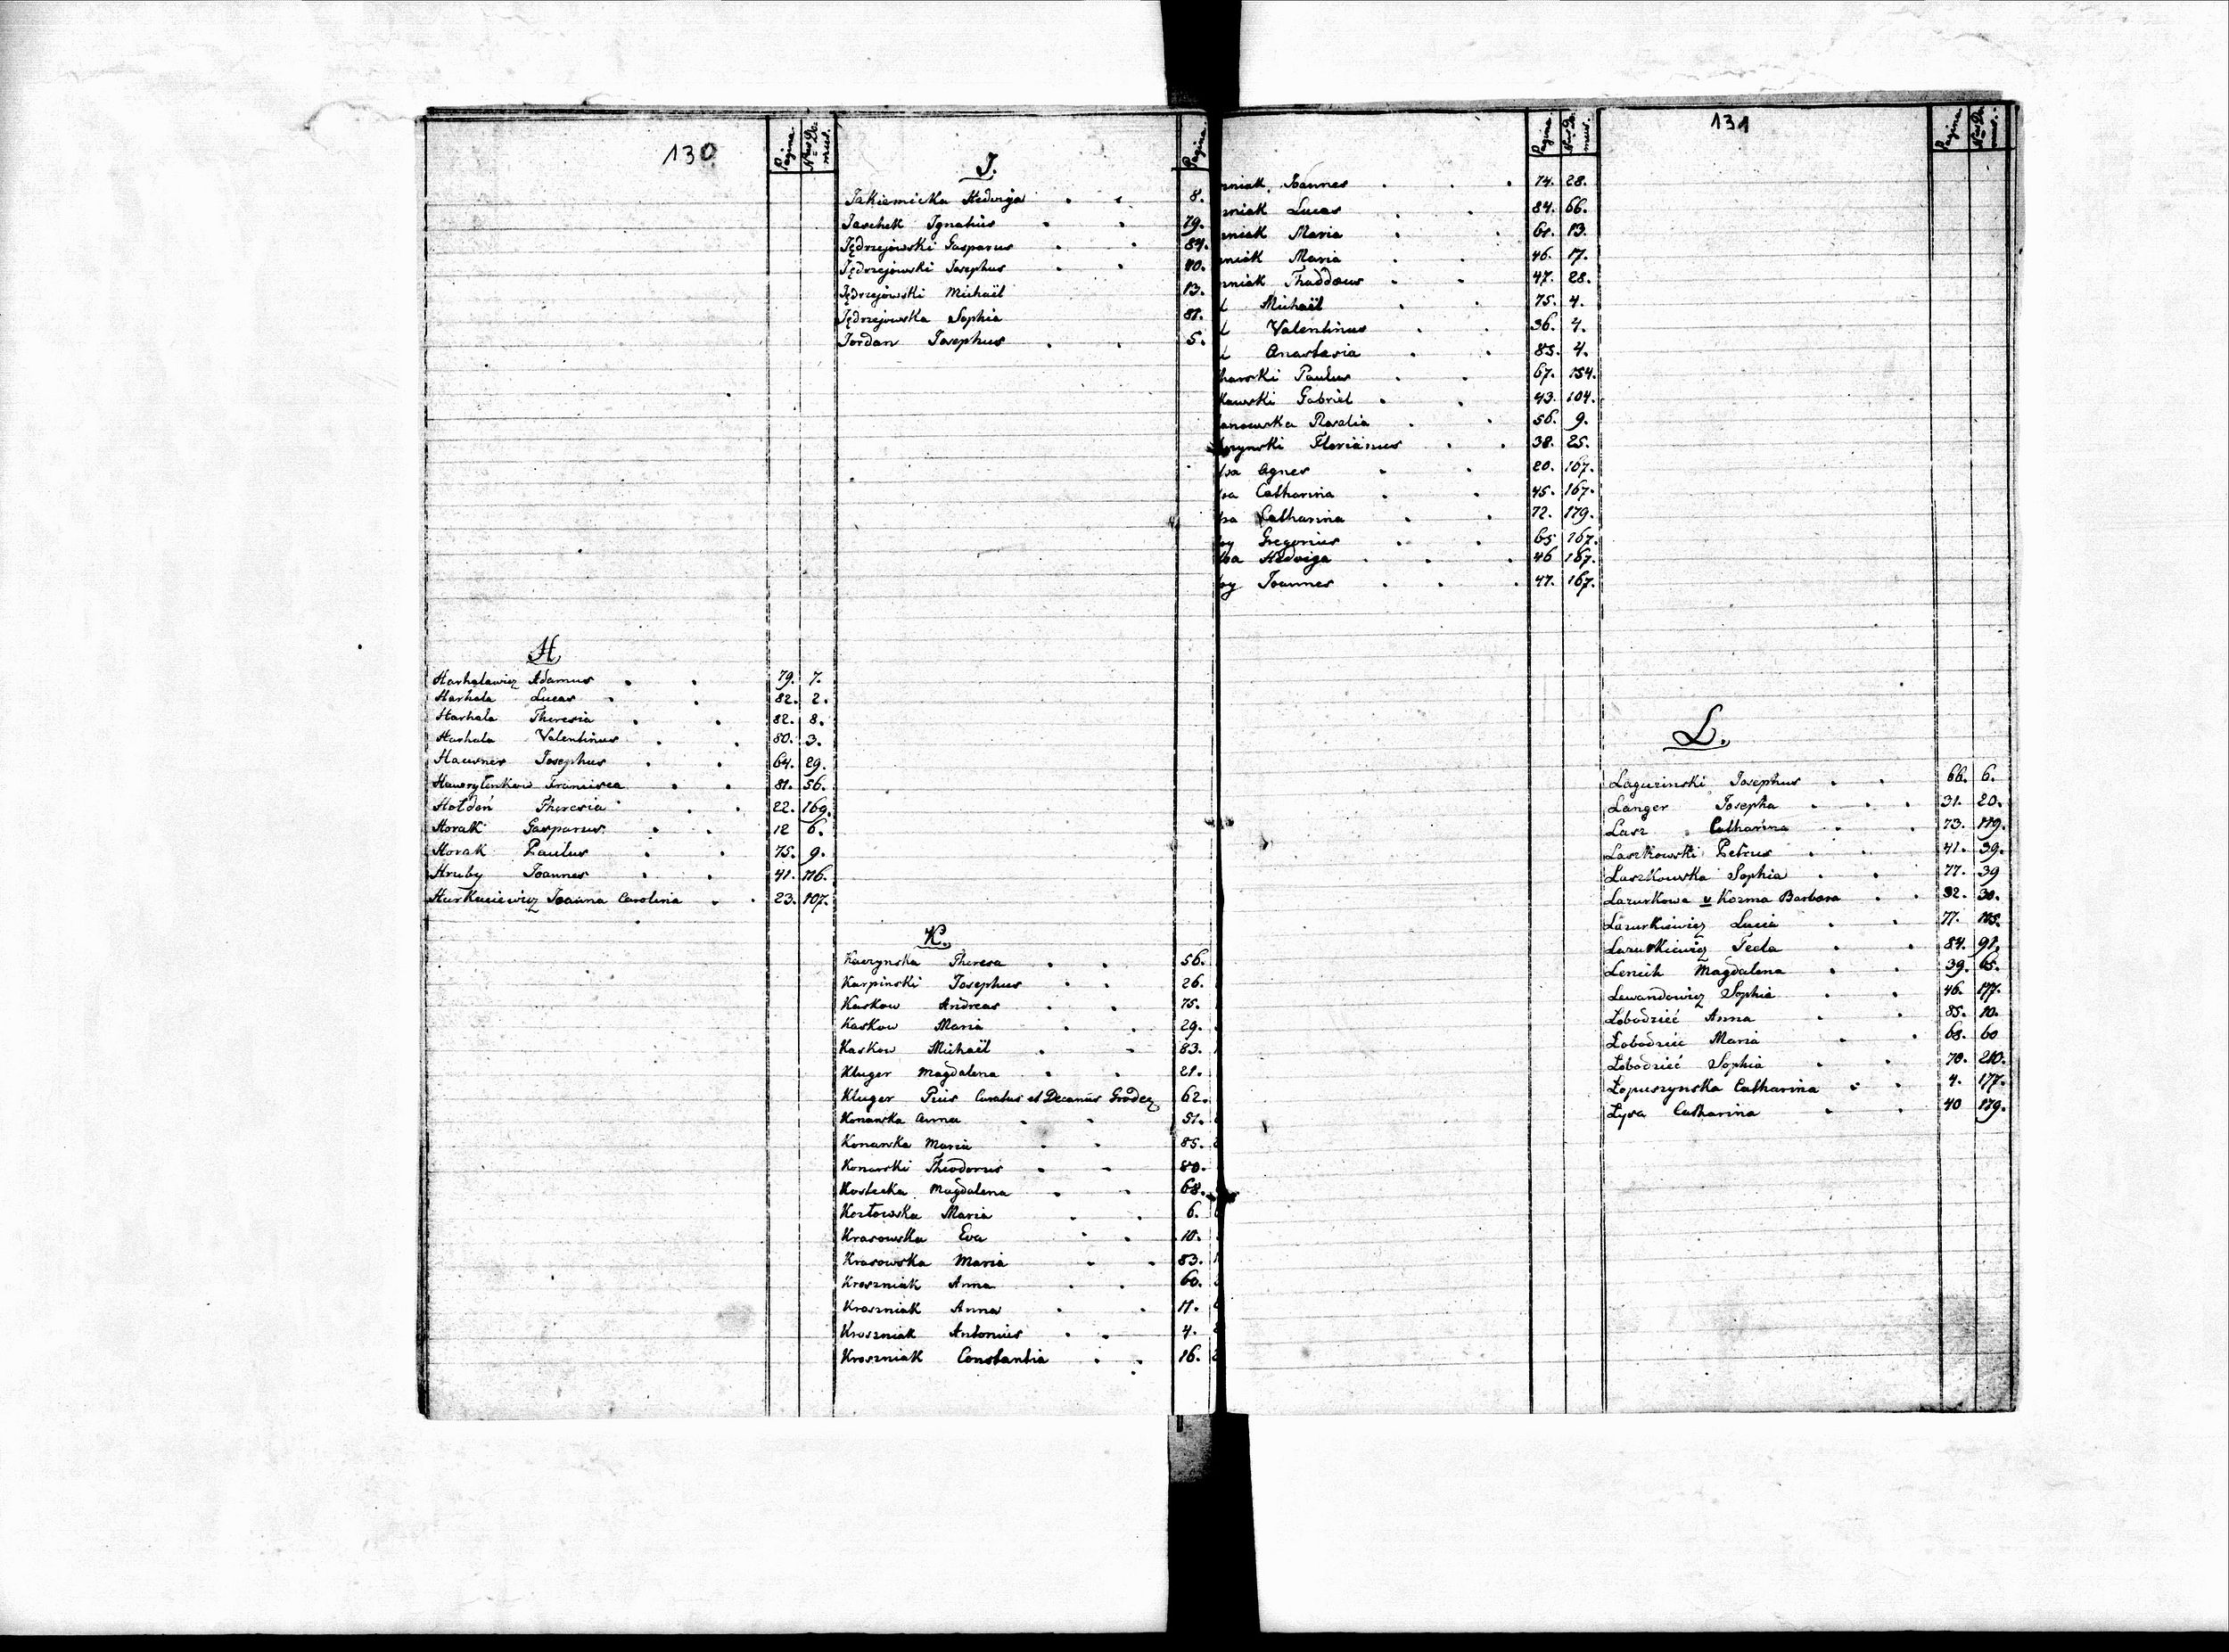 130
Pagina. Nrus Do-mus.
H
Harhalewicz Adamus 79. 7.
Harhala Lucas 82. 2.
Harhala Theresia 82. 8.
Harhala Valentinus 80. 3.
Hausner Josephus 64. 29.
Hawrylenkow Francisca 81. 56.
Hołdoń Theresia 22. 169.
Horak Gasparus 12 6.
Horak Paulus 75. 9.
Hruby Joannes 41. 116.
Joanna Carolina 23. 107.
J.
Pagina.
Hedwiga 8.
Jaschek Ignatius 79.
Jędrzejowski Gasparus 84.
Jędrzejowski Josephus 40.
Jędrzejowski Michaël 13.
Jędrzejowska Sophia 81.
Jordan Josephus 5.
K.
Kaczynska Theresa 56.
Karpinski Josephus 26.
Kaskow Andreas 75.
Kaskow Maria 29.
Kaskow Michaël 83.
Kluger Magdalena 21.
Kluger Pius Curatus et Decanus Grodec. 62.
Konarska Anna 51.
Konarska Maria 85.
Konarski Theodorus 80.
Kostecka Magdalena 68.
Kozłowska Maria 6.
Krasowska Eva 10.
Krasowska Maria 83.
Kroszniak Anna 60.
Kroszniak Anna 11.
Kroszniak Antonius 4.
Kroszniak Constantia 16.
131
Pagina Nrus Do-mus.
niak Joannes 74. 28.
zniak Lucas 84. 66.
niak Maria 61. 13.
niak Maria 46. 17.
zniak Thaddaeus 47. 28.
l Michaël 75. 4.
l Valentinus 36. 4.
l Anastasia 83. 4.
harski Paulus 67. 154.
kowski Gabriel 43. 104.
anowska Rosalia 56. 9.
zynski Florianus 38. 25.
sa Agnes 20. 167.
sa Catharina 45. 167.
sa Catharina 72. 179.
sy Gregorius 65 167.
sa Hedviga 46 167.
sy Joannes 47. 167.
Pagina Nrus Do-mus.
L.
Josephus 66. 6.
Langer Josepha 31. 20.
Lasz Catharina 73. 179.
Laszkowski Petrus 41. 39.
Laszkowska Sophia 77. 39
Lazurkowa v Kozma Barbara 32. 30.
Lazurkiewicz Lucia 77.
Lazurkiewicz Tecla 84. 91.
Lenich Magdalena 39. 65.
Lewandowicz Sophia 46. 177.
Łobodzieć Anna 85. 10.
Łobodzieć Maria 68. 60
Łobodzieć Sophia 70. 210.
Łopuszynska Catharina 4. 177.
Łysa Catharina 40 179.